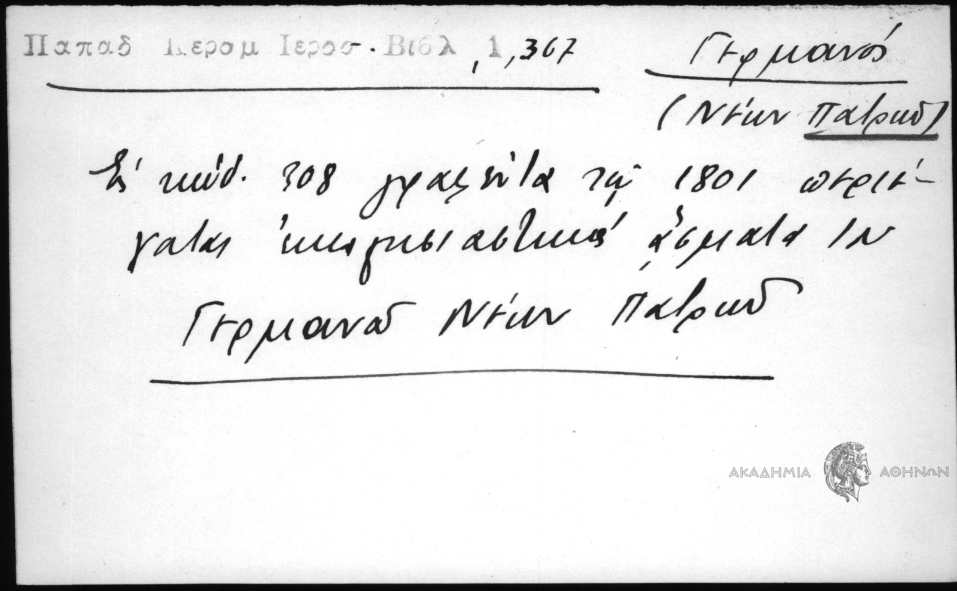 Παπαδ Κερομ Ιεροσ. Βιβλ 1,,367
Γερμανός
(Νέων Πατρῶν)
Ἐν κώδ. 308 γραφέντα τῷ 1801 περιέ-
χεται ἐκκλησιαστικά ᾄσματα
Γερμανοῦ Νέων Πατρῶν
ΑΚΑΔΗΜΙΑ ΑΘΗΝΩΝ